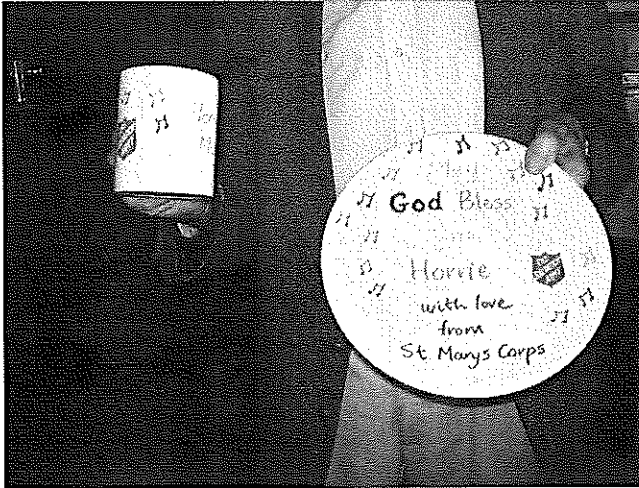 God Bless
Horrie
with love
from
St Marys Corps